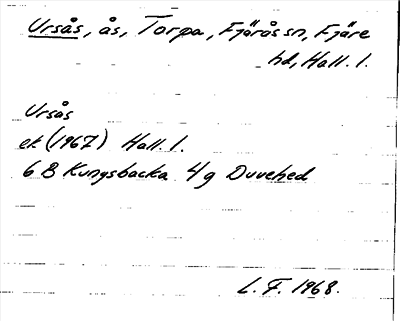 Ursås, ås, Torpa, Fjärås sn, Fjäre
hd, Hall. l.
Ursås
ek (1967) Hall. l.
6 B Kungsbacka 4g Duvehed
L. F. 1968.